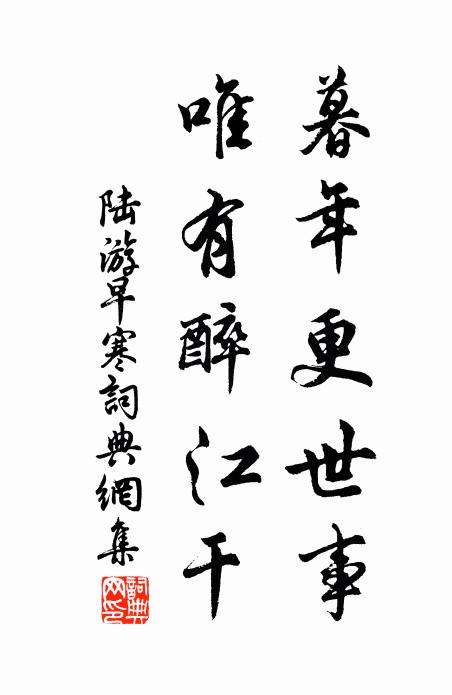 暮年更世事
唯有醉江干
陆游早寒詞典網集
詞典网印